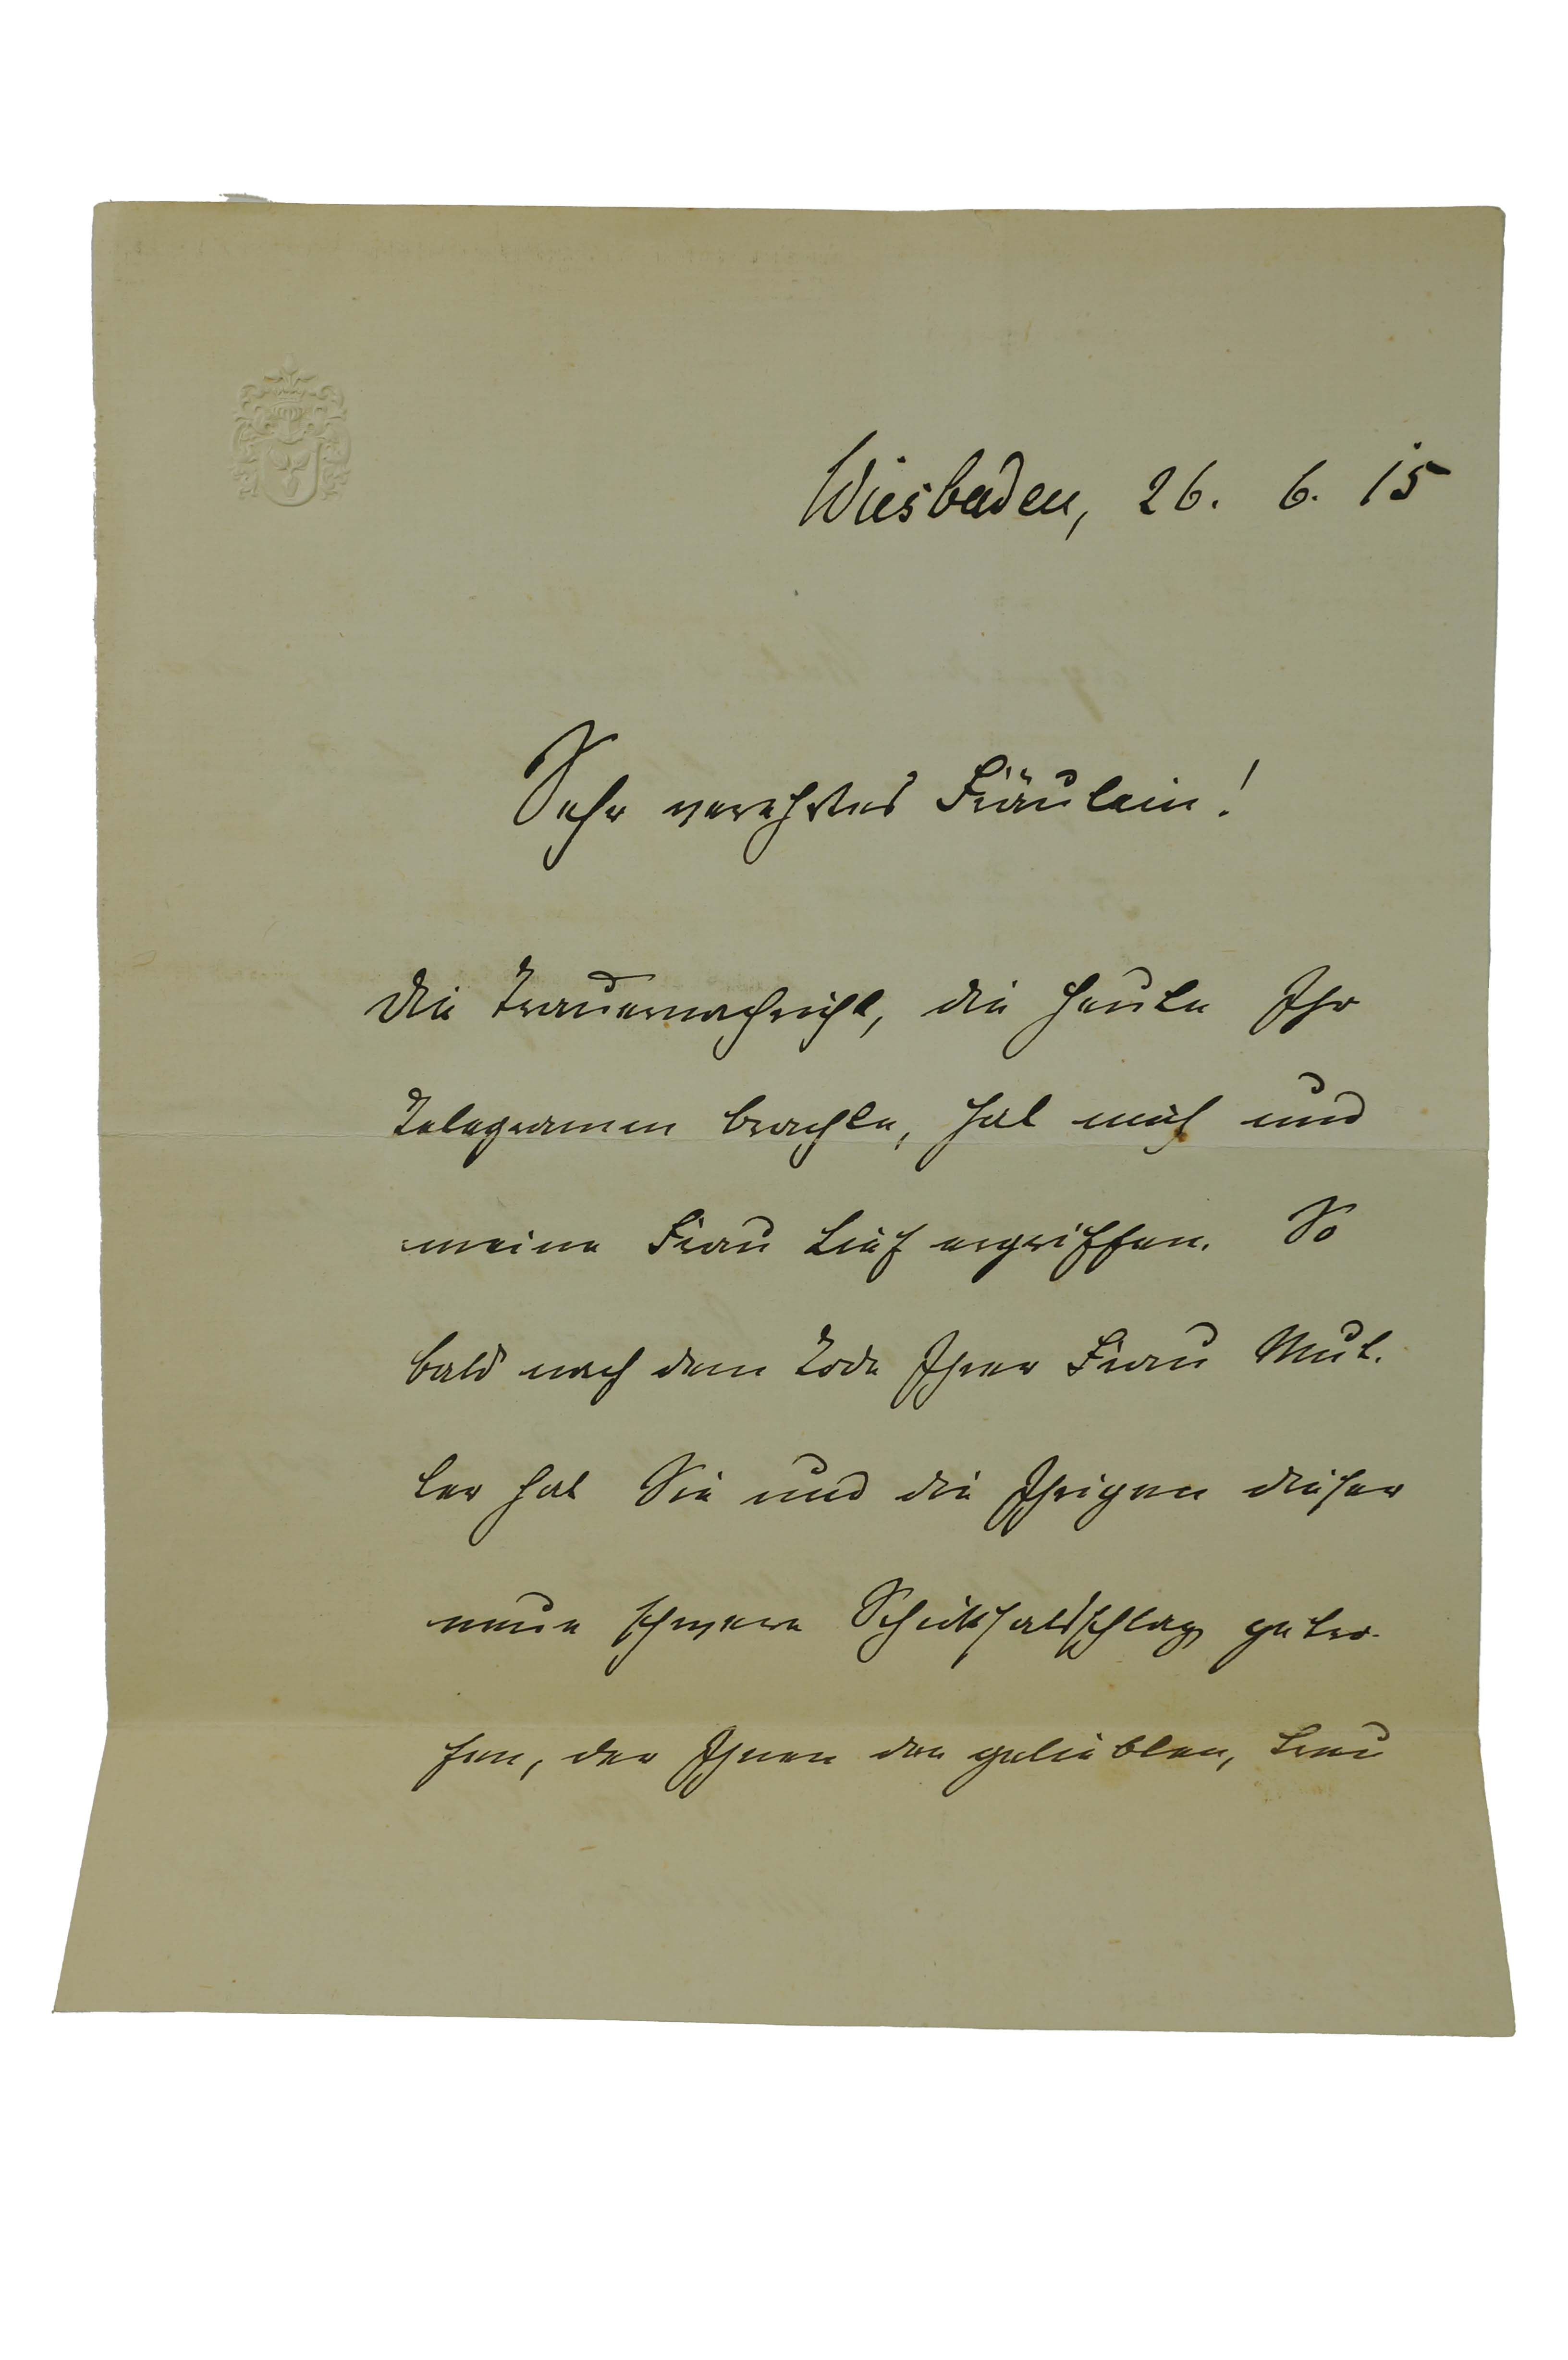 Wiesbaden, 26. 6. 15
Sehr verehrtes Fräulein!
Die Trauernachricht, die heute Ihr
Telegramm brachte, hat mich und
meine Frau tief ergriffen. So
bald nach dem Tode Ihrer Frau Mut-
ter hat Sie und die Ihrigen dieser
neue schwere Schicksalsschlag getro-
fen, der Ihnen den geliebten, treu